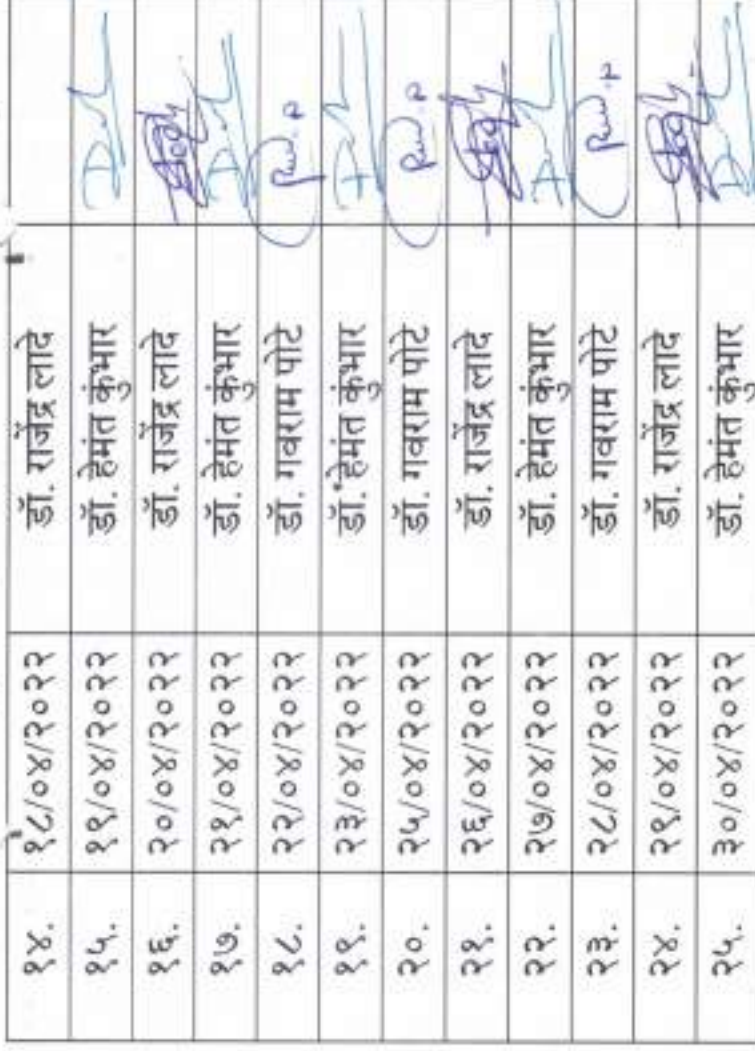 १४. १८/०४/२०२२ डॉ. राजेंद्र लादे
१५. १९/०४/२०२२ डॉ. हेमंत कुंभार
१६. २०/०४/२०२२ डॉ. राजेंद्र लादे
१७. २१/०४/२०२२ डॉ. हेमंत कुंभार
१८. २२/०४/२०२२ डॉ. गवराम पोटे
१९. २३/०४/२०२२ डॉ. हेमंत कुंभार
२०. २५/०४/२०२२ डॉ. गवराम पोटे
२१. २६/०४/२०२२ डॉ. राजेंद्र लादे
२२. २७/०४/२०२२ डॉ. हेमंत कुंभार
२३. २८/०४/२०२२ डॉ. गवराम पोटे
२४. २९/०४/२०२२ डॉ. राजेंद्र लादे
२५. ३०/०४/२०२२ डॉ. हेमंत कुंभार